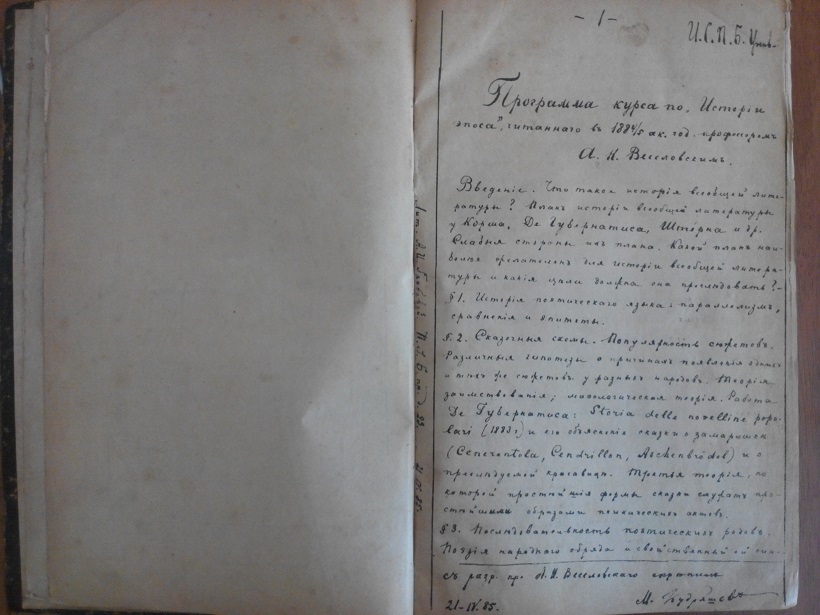 - 1 -
И. С. П. Б. Унив.
Программа курса по „Исторіи
эпоса", читаннаго въ 1884/5 ак. год. профессоромъ
А. Н. Веселовскимъ.
Введеніе. Что такое исторія всеобщей лите-
ратуры? Планъ исторіи всеобщей литературы
у Корша, Де Губернатиса, Штерна и др.
Слабыя стороны ихъ плана. Какой планъ наи-
болѣе желателенъ для исторіи всеобщей литера-
туры и какія цѣли должна она преслѣдовать? -
§ 1. Исторія поэтическаго языка: параллелизмъ,
сравненія и эпитеты.
§. 2. Сказочныя схемы. Популярность сюжетовъ.
Различныя гипотезы о причинахъ появленія однихъ
и тѣхъ же сюжетовъ у разныхъ народовъ. Теорія
заимствованія; миѳологическая теорія. Работа
De Губернатиса: Storia delle novelline popo-
lari (1883 г) и его объясненіе сказокъ о замарашкѣ
(Cenerentola, Cendrillon, Aschenbrödel) и о
преслѣдуемой красавицѣ. Третья теорія, по
которой простѣйшія формы сказки служатъ про-
стѣйшими образами психическихъ актовъ.
§ 3. Послѣдовательность поэтическихъ родовъ.
Поэзія народнаго обряда и свойственный ей син-
съ разр. пр. А. Н. Веселовскаго
М. Кудряшевъ
21-IV 85.